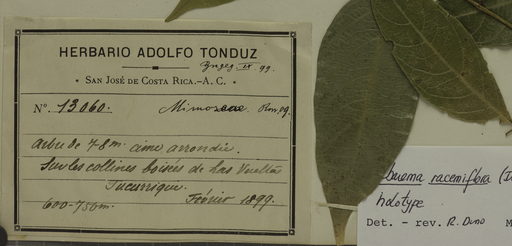 HERBARIO ADOLFO TONDUZ
IX 99.
* SAN JOSÉ DE COSTA RICA.-A. C. *
Nº. 13060. Mimoseae
arbre de 7-8 m. cime arrondie.
Sur les collines boisées de Las Vueltas
Tucurrique.
600-750m. Février 1899.
Buema racemiflora
holotype
Det. - rev. R. Dino M